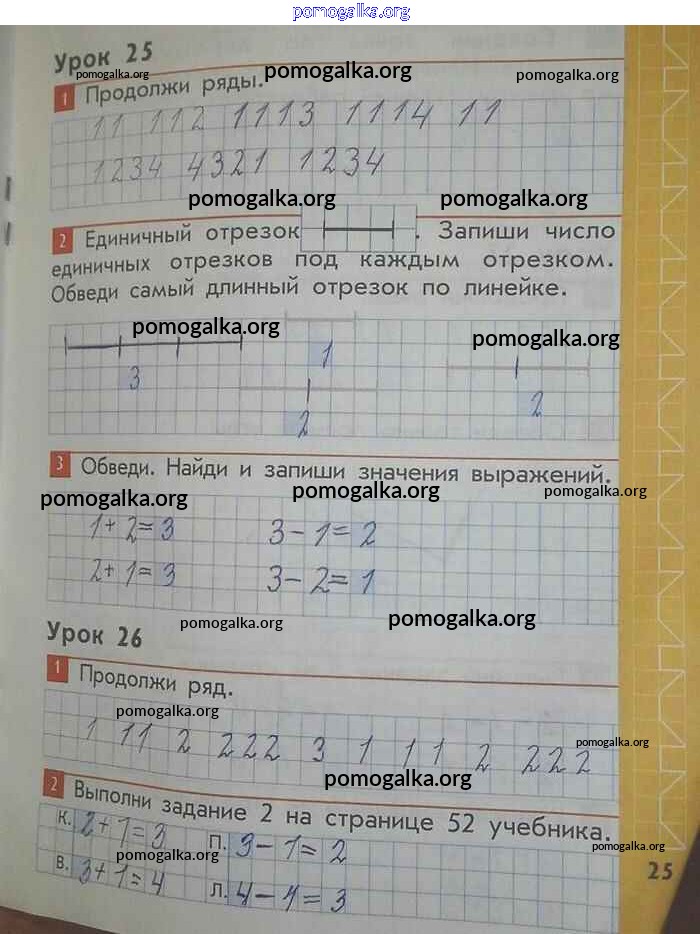 pomogalka.org
Урок 25
pomogalka.org pomogalka.org pomogalka.org
1 Продолжи ряды.
11 112 1113 1114 11
1234 4321 1234
pomogalka.org pomogalka.org
2 Единичный отрезок . Запиши число
единичных отрезков под каждым отрезком.
Обведи самый длинный отрезок по линейке.
pomogalka.org pomogalka.org
1
3
2 2
3 Обведи. Найди и запиши значения выражений.
pomogalka.org pomogalka.org pomogalka.org
1+2=3 3-1=2
2+1=3 3-2=1
pomogalka.org pomogalka.org
Урок 26
1 Продолжи ряд.
pomogalka.org
1 11 2 222 3 1 11 2 222
pomogalka.org
pomogalka.org
2 Выполни задание 2 на странице 52 учебника.
к. 2+1=3 п. 3-1=2
pomogalka.org pomogalka.org
в. 3+1=4 л. 4-1=3
25